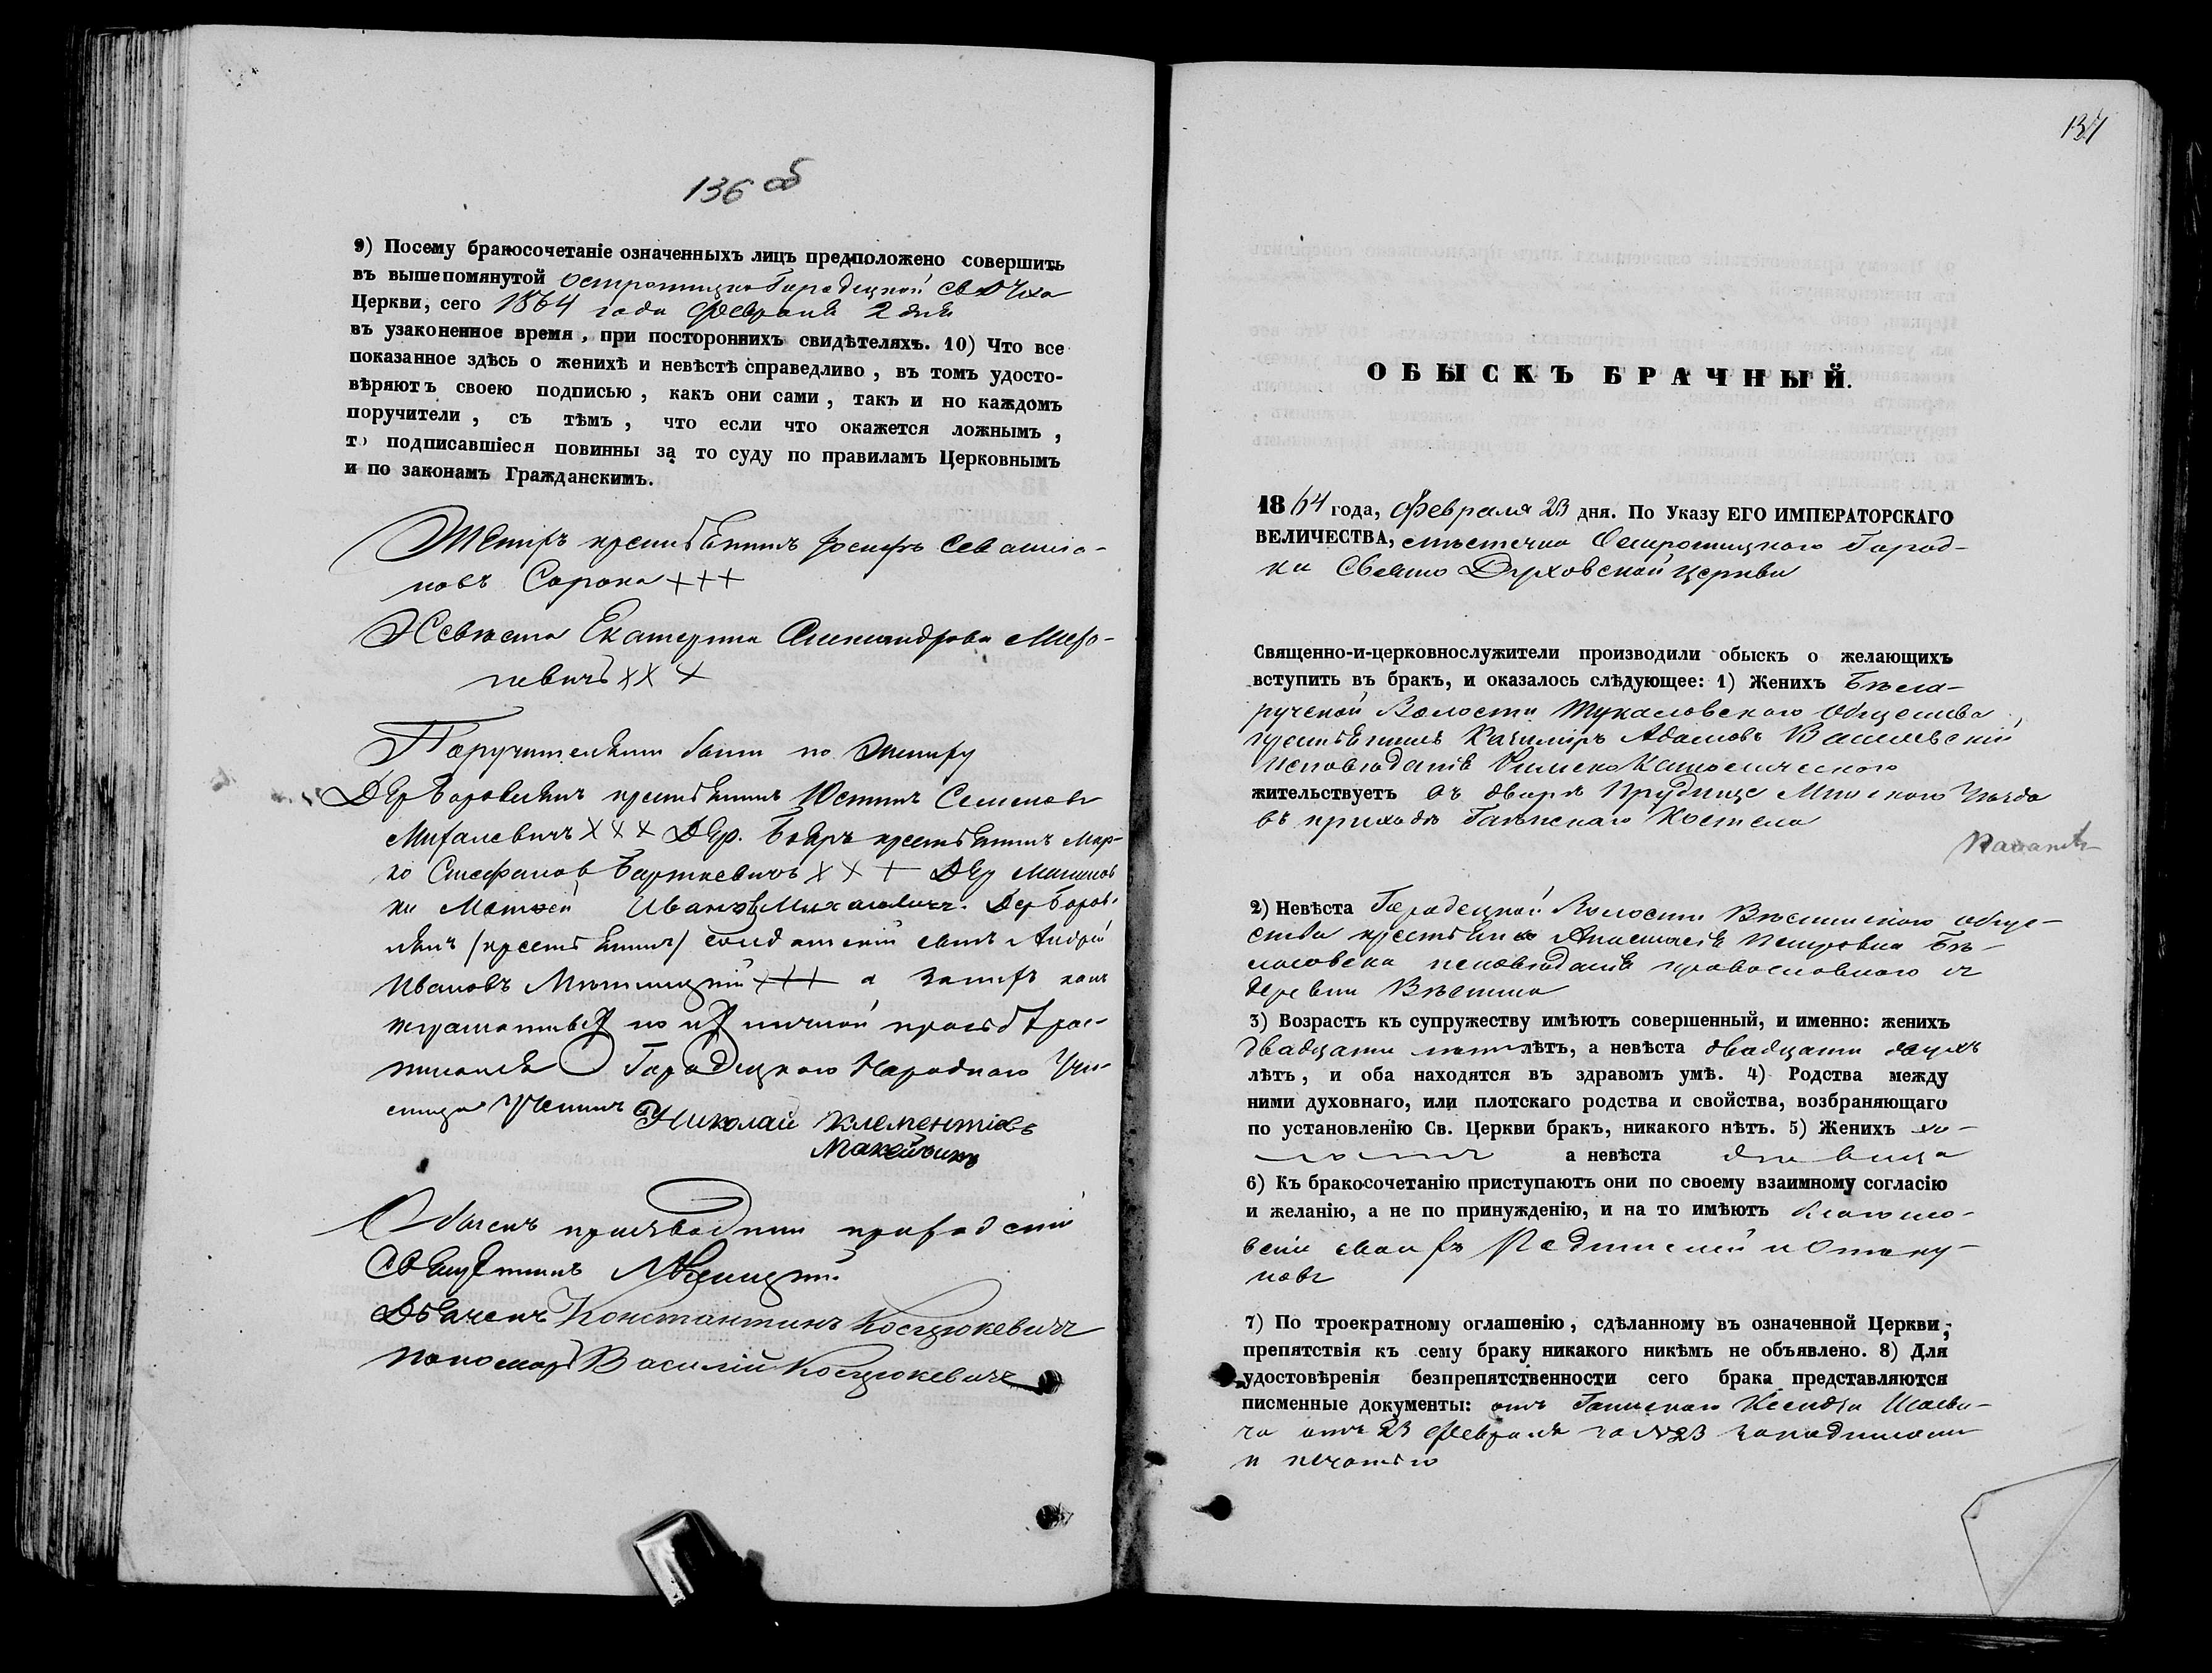 136 об
9) Посему бракосочетаніе означенныхъ лицъ предположено совершить
въ вышепомянутой Остромицко Городецкой Св Духа
Церкви, сего 1864 года Февраля 2 дня
въ узаконенное время, при постороннихъ свидѣтеляхъ. 10) Что все
показанное здѣсь о женихѣ и невѣстѣ справедливо, въ томъ удосто-
вѣряютъ своею подписью, какъ они сами, такъ и по каждомъ
поручители, съ тѣмъ, что если что окажется ложнымъ,
то подписавшіеся повинны за то суду по правиламъ Церковнымъ
и по законамъ Гражданскимъ.
Женихъ крестьянинъ Іосифъ Севастіа-
новъ Сорока +++
Невѣста Екатерина Александрова Миро-
невичъ ХХ Х
Поручителями были по Жениху
Дер Боровлянъ крестьянинъ Юстинъ Семеновъ
Михалевичъ ХХХ Дер. крестьянинъ Мар-
ко Стефановъ Барткевичъ Х Х + Дер
Матѳей Ивановъ Михалевичъ. Дер Боров-
лянъ (крестьянинъ) солдатскій сынъ Андрей
Ивановъ +++ а за нихъ какъ
неграмотныхъ по их личной просьбѣ рос-
писался Городецкаго Народнаго Учи-
лища Ученикъ Николай Клементіевъ
Макейчикъ
Обыскъ производили приходскій
Священникъ
Дьячекъ Константинъ Косцюкевичъ
Пономарь Василій Косцюкевичъ
137
ОБЫСКЪ БРАЧНЫЙ.
1864 года, Февраля 23 дня. По Указу ЕГО ИМПЕРАТОРСКАГО
ВЕЛИЧЕСТВА, мѣстечка Остромицкаго Город-
ка Свято Духовской церкви
Священно-и-церковнослужители производили обыскъ о желающихъ
вступить въ бракъ, и оказалось слѣдующее: 1) Женихъ Бѣло-
ручской Волости Общества,
крестьянинъ Казиміръ Адамовъ Василевскій
исповѣданія Римско Католическаго
жительствуетъ въ дворѣ Прудище Минского Уѣзда
въ приходѣ Гаенскаго Костела
2) Невѣста Городецкой Волости обще-
ства крестьянка Анастасія Петровна Бѣ-
исповѣданія православнаго из
деревни
3) Возрастъ къ супружеству имѣютъ совершенный, и именно: женихъ
двадцати пяти лѣтъ, а невѣста двадцати двухъ
лѣтъ, и оба находятся въ здравомъ умѣ. 4) Родства между
ними духовнаго, или плотскаго родства и свойства, возбраняющаго
по установленію Св. Церкви бракъ, никакого нѣтъ. 5) Женихъ хо-
лостъ а невѣста дѣвица
6) Къ бракосочетанію приступаютъ они по своему взаимному согласію
и желанію, а не по принужденію, и на то имѣютъ благосло-
веніе своихъ Родителей и Опеку-
новъ
7) По троекратному оглашенію, сдѣланному въ означенной Церкви,
препятствія къ сему браку никакого никѣмъ не объявлено. 8) Для
удостовѣренія безпрепятственности сего брака представляются
писменные документы: отъ Гаинскаго Ксендза
отъ 23 февраля за №23 за подписом
и печатью